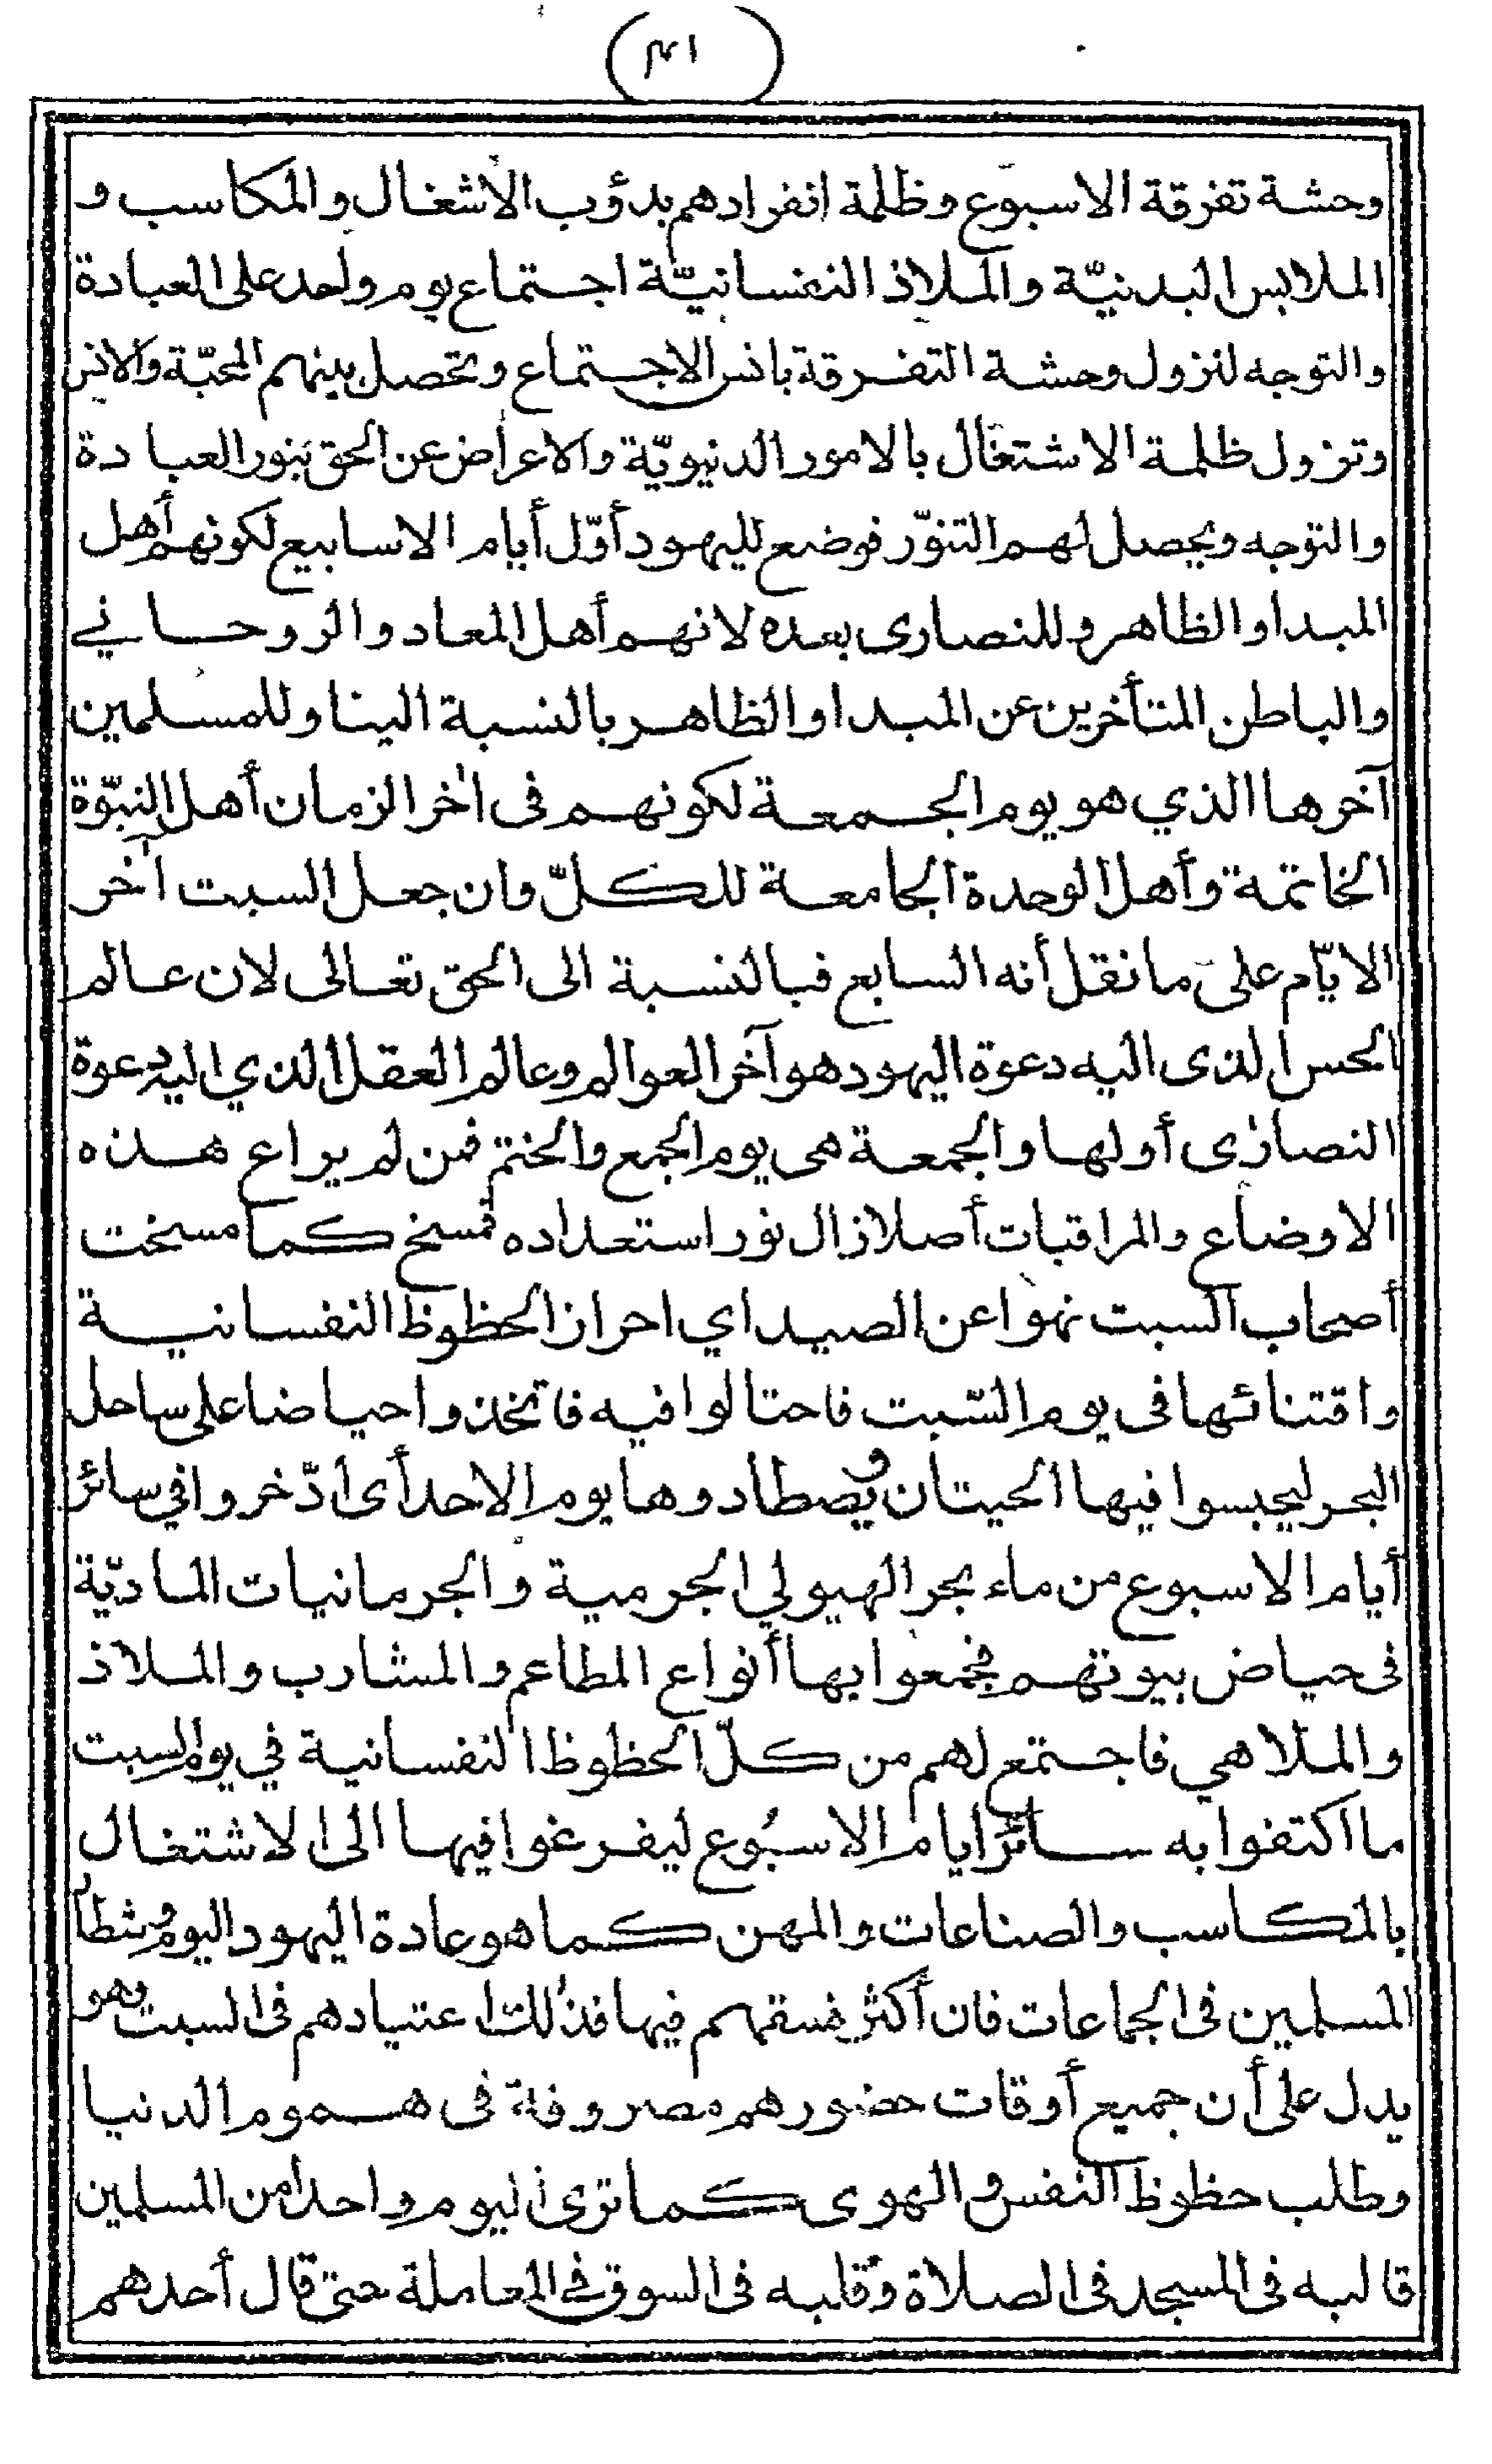 وحشة تفرقة الاسبوع وظلمة انفرادهم بدؤب الأشغال والمكاسب و
الملابس البدنيّة والملاذ النفسانيّة اجتماع يوم واحد على العبادة
والتوجه لتزول وحشة التفرقة بانس الاجتماع وتحصل بينهم المحبّة والانس
وتزول ظلمة الاشتغال بالامور الدنيويّة والاعراض عن الحق بنور العبادة
والتوجه ويحصل لهم التنوّر فوضع لليهود أوّل أيام الاسابيع لكونهم أهل
المبدا والظاهر وللنصارى بعده لانهم أهل المعاد والروحاني
والباطن المتأخرين عن المبدا والظاهر بالنسبة الينا وللمسلمين
آخرها الذي هو يوم الجمعة لكونهم فى اٰخر الزمان أهل النبّوة
الخاتمة وأهل الوحدة الجامعة للكلّ وان جعل السبت اٰخر
الايّام على ما نقل أنه السابع فبالنسبة الى الحق تعالى لان عالم
الحس الذى اليه دعوة اليهود هو آخر العوالم وعالم العقل الذي اليه دعوة
النصارٰى أولها والجمعة هى يوم الجمع والختم فمن لم يراع هذه
الاوضاع والمراقبات أصلا زال نور استعداده فمسخ كما مسخت
أصحاب السبت نهوا عن الصيد اي احراز الحظوظ النفسانية
واقتنائها فى يوم السّبت فاحتالوا فيه فاتخذوا حياضا على ساحل
البحر ليحبسوا فيها الحيتان ويصطادوها يوم الاحد أى ادّخروا في سائر
أيام الاسبوع من ماء بحر الهيولي الجرمية والجرمانيات الماديّة
فى حياض بيوتهم فجمعوا بها أنواع المطاعم والمشارب والملاذ
والملاهي فاجتمع لهم من كلّ الحظوظ النفسانية في يوم السبت
ما اكتفوا به سائر ايام الاسبُوع ليفرغوا فيها الى الاشتغال
بالمكاسب والصناعات والمهن كما هو عادة اليهود اليوم وشطار
المسلمين فى الجماعات فان أكثر فسقهم فيها فذٰلك اعتيادهم فى السبت وهو
يدل على أن جميع أوقات حضورهم مصروفة فى هموم الدنيا
وطلب حظوظ النفس والهوى كما ترى اليوم واحدا من المسلمين
قالبه فى المسجد فى الصلاة وقلبه فى السوق فى المعاملة حتى قال أحدهم